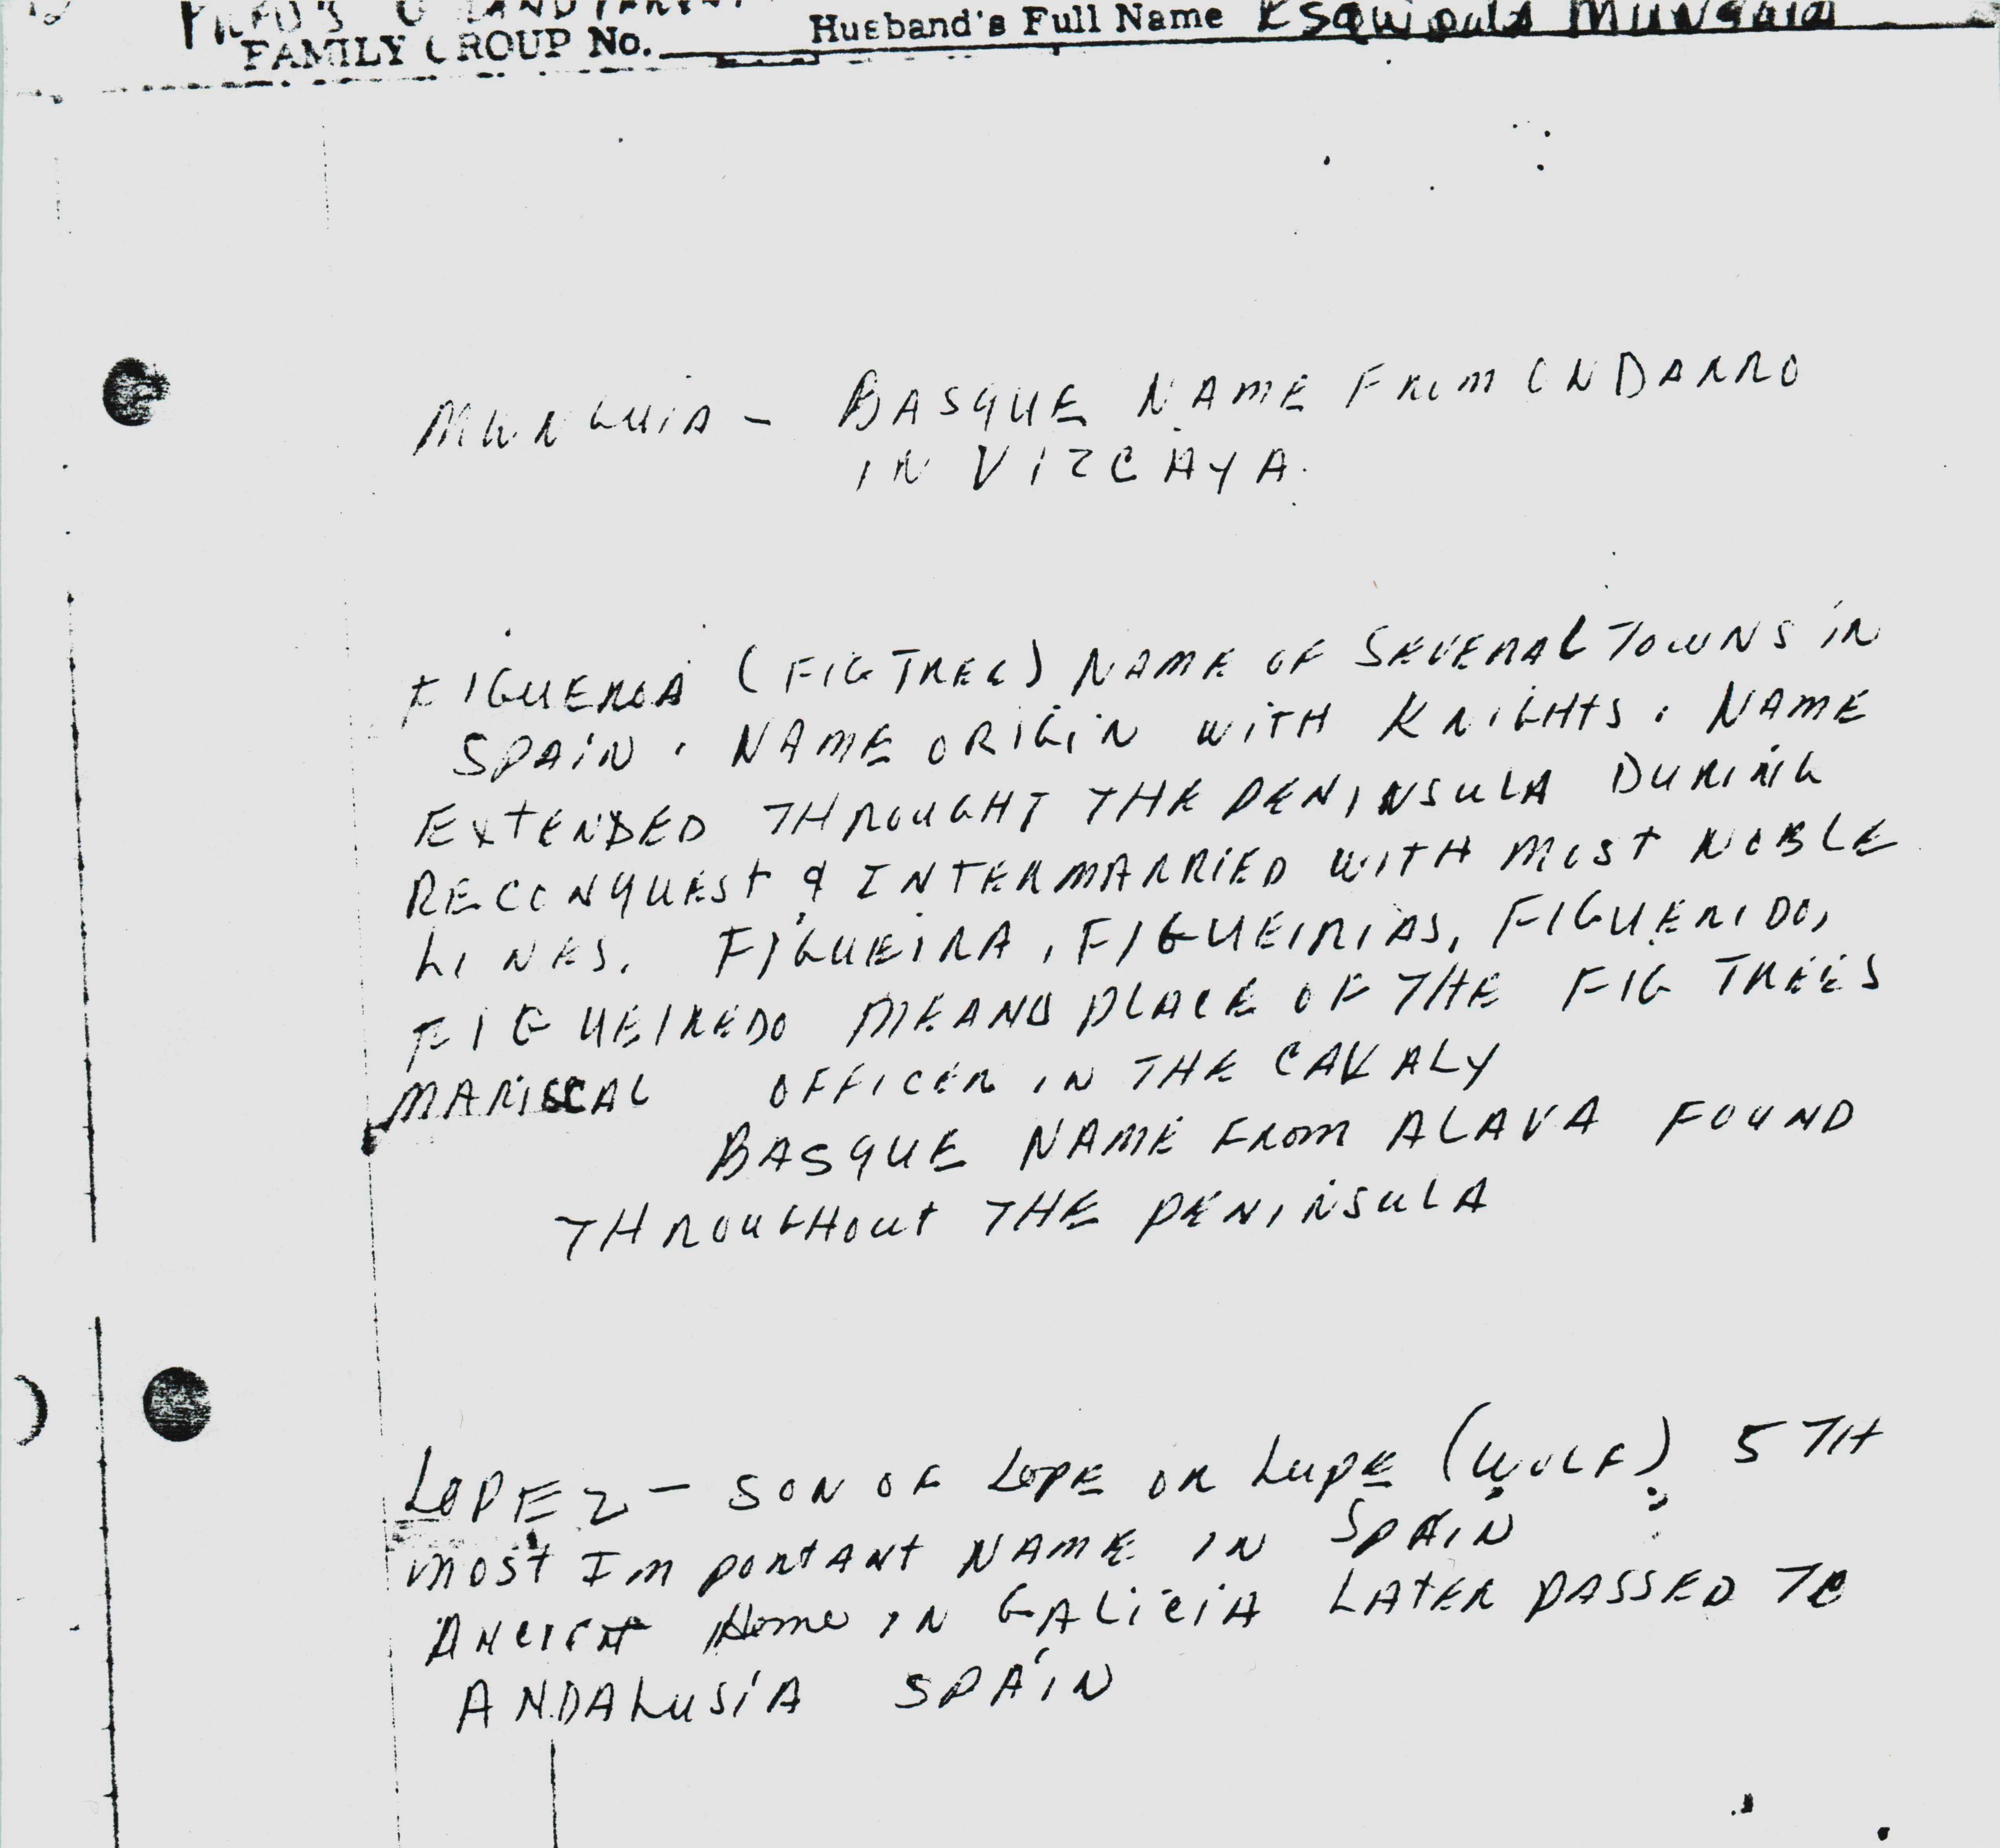 FAMILY GROUP No. Husband's Full Name Esquipula Munguia
MUNGUIA - BASQUE NAME FROM ONDARRO
IN VIZCAYA.
FIGUEROA (FIG TREE) NAME OF SEVERAL TOWNS IN
SPAIN. NAME ORIGIN WITH KNIGHTS. NAME
EXTENDED THROUGHT THE PENINSULA DURING
RECONQUEST & INTERMARRIED WITH MOST NOBLE
LINES. FIGUEIRA, FIGUEIRIAS, FIGUERIDO,
FIGUEIREDO MEANS PLACE OF THE FIG TREES
MARISCAL OFFICER IN THE CAVALY
BASQUE NAME FROM ALAVA FOUND
THROUGHOUT THE PENINSULA
LOPEZ - SON OF LOPE OR LUPE (WOLF) 5TH
MOST IMPORTANT NAME IN SPAIN
ANCIENT Home IN GALICIA LATER PASSED TO
ANDALUSIA SPAIN